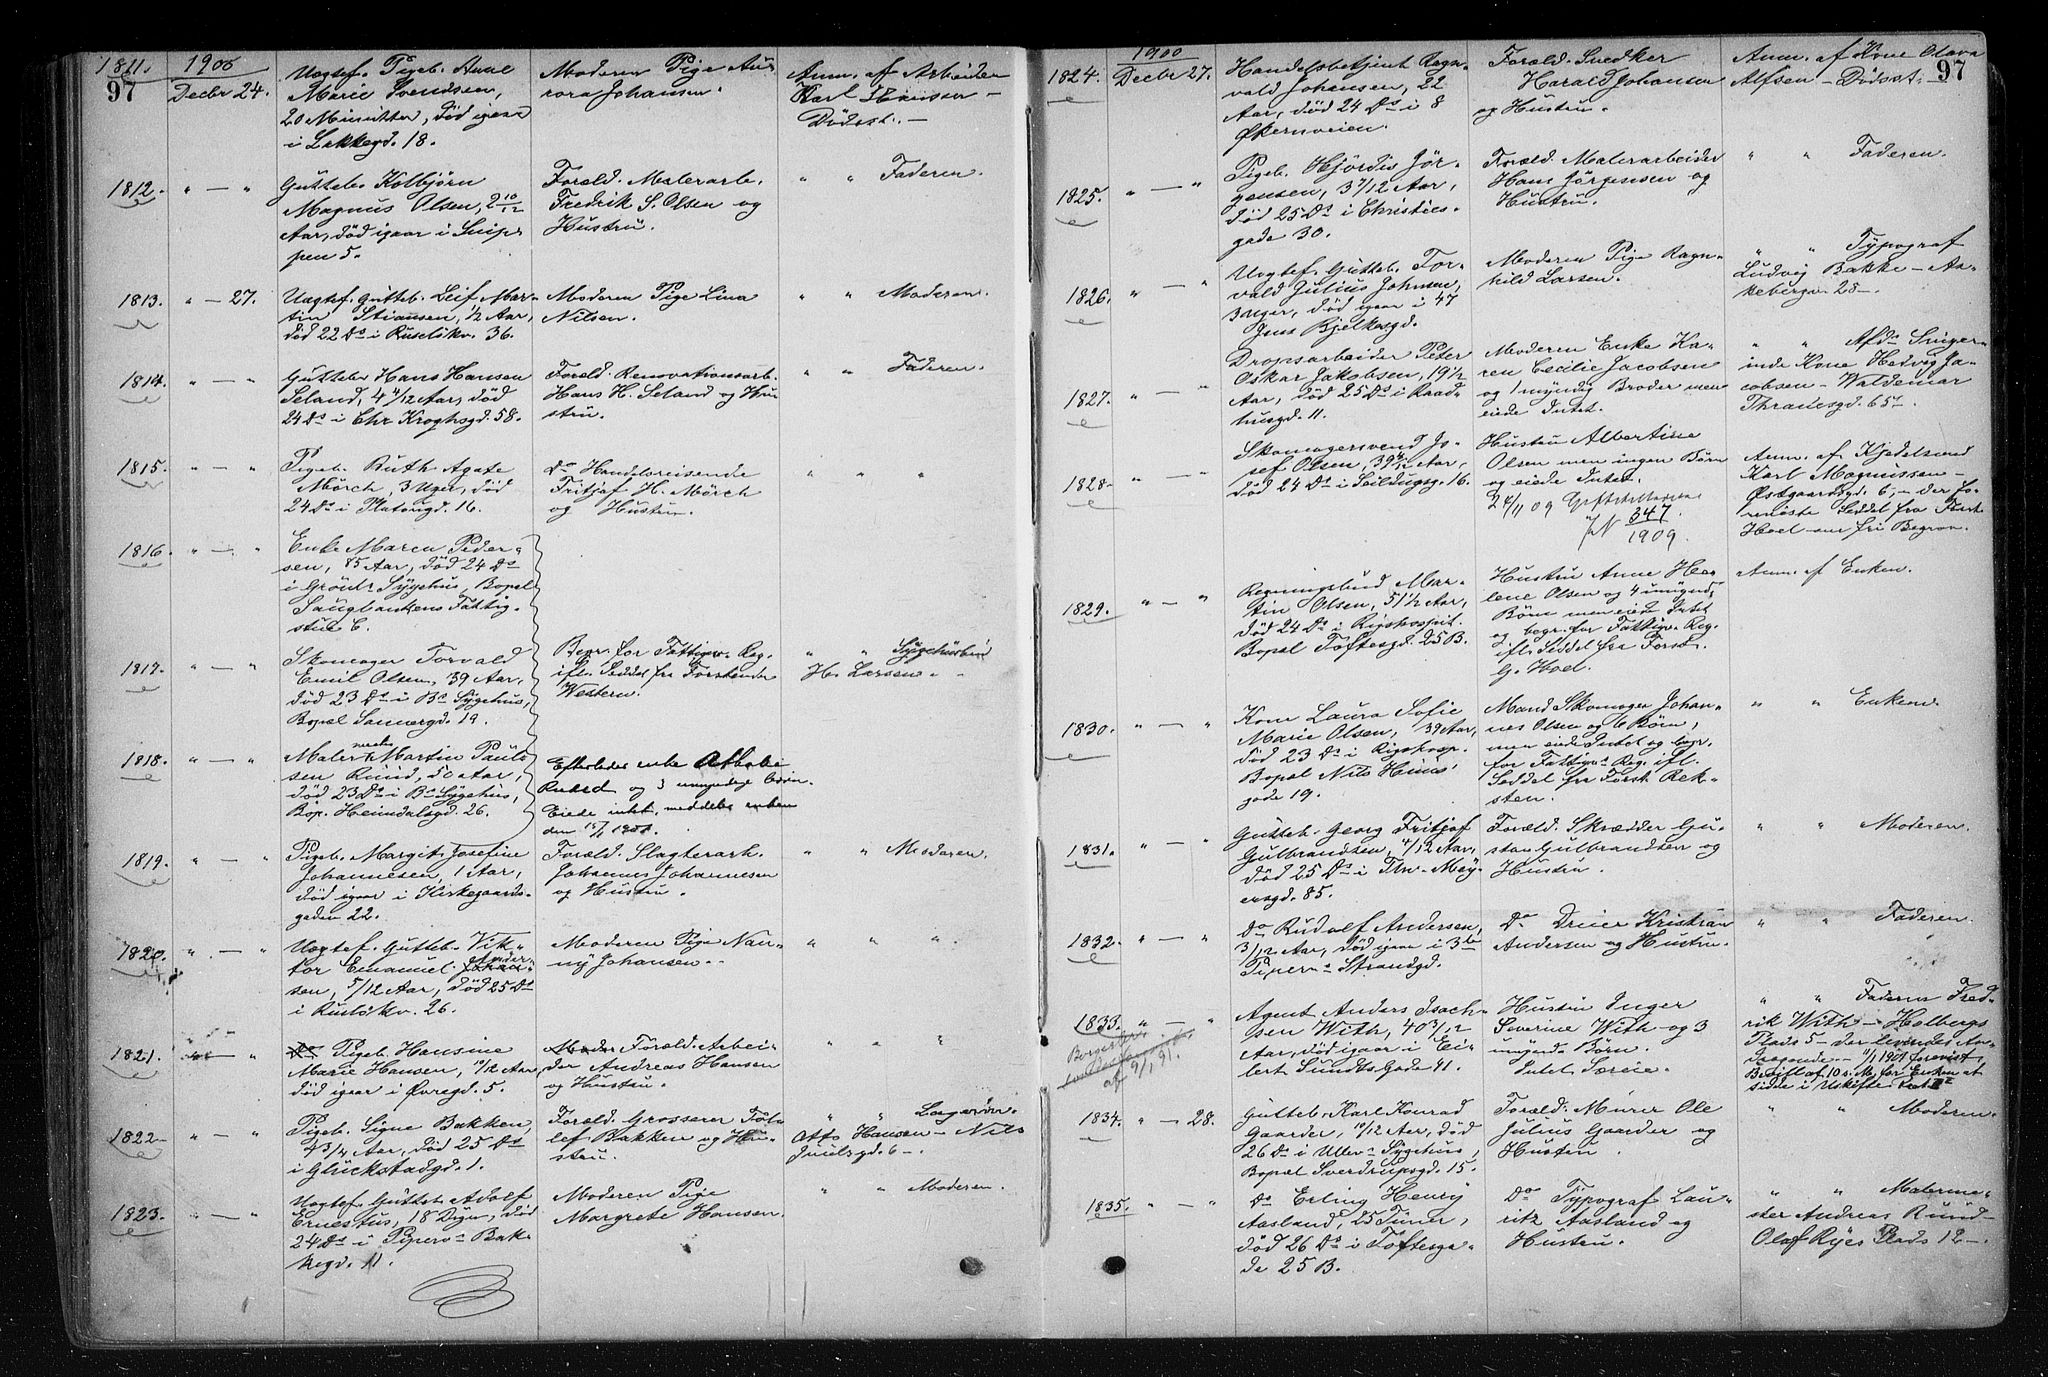 1811.
97
1900
Decbr 24.
Uægtef. Pigeb. Anne
Marie Svendsen,
20 Minutter, død igaar
i Lakkegd. 18.
Moderen Pige Au-
rora Johansen.
Anm. af Arbeider
Karl Hansen –
Dødsst. –
1812.
" — "
Gutteb. Kolbjørn
Magnus Olsen, 2 10/12
Aar, død igaar i Snip-
pen 5.
Foræld. Malerarb.
Fredrik S. Olsen og
Hustru.
" " Faderen.
1813.
" — 27.
Uægtef. Gutteb. Leif Mar-
tin Stiansen, 1/2 Aar,
død 22 Ds i Ruseløkv. 36.
Moderen Pige Lina
Nilsen.
" " Moderen.
1814.
" — "
Gutteb. Hans Hansen
Seland, 4 4/12 Aar, død
24 Ds i Chr Kroghsgd. 58.
Foræld. Renovationsarb.
Hans H. Seland og Hu-
stru.
" " Faderen.
1815.
" — "
Pigeb. Ruth Agate
Mørch, 3 Uger, død
24 Ds i Platousgd. 16.
Do Handelsreisende
Fritjof H. Mørch
og Hustru.
" " "
1816.
" — "
Enke Maren Peder-
sen, 85 Aar, død 24 Ds
i Grønl. Sygehus, Bopæl
Saugbankens Fattig-
stue C.
1817.
" — "
Skomager Torvald
Emil Olsen, 39 Aar,
død 23 Ds i Bs Sygehus,
Bopæl Sannergd. 19.
Begr. for Fattigv. Reg.
ifl. Seddel fra Forstander
Western.
" " Sygehusbud
H. Larsen. –
1818.
" — "
Malermester Martin Pauls-
sen Ruud, 50 Aar,
død 23 Ds i Bs Sygehus,
Bop. Heimdalsgd. 26.
Efterlader enke
Ruud og 3 umyndige børn.
Eiede intet, meddeles enken
den 15/1 1901.
1819.
" — "
Pigeb. Margit Josefine
Johannesen, 1 Aar,
død igaar i Kirkegaards-
gaden 22.
Foræld. Slagterarb.
Johannes Johannesen
og Hustru.
" " Moderen.
1820.
" — "
Uægtef. Gutteb. Vik-
tor Emanuel Ander-
sen, 5/12 Aar, død 25 Ds
i Rusløkv. 26.
Moderen Pige Nan-
ny Johansen. –
" " "
1821.
" — "
Do Pigeb. Hansine
Marie Hansen, 10/12 Aar,
død igaar i Øvregd. 5.
Moder Foræld. Arbei-
der Andreas Hansen
og Hustru.
" " "
1822.
" — "
Pigeb. Signe Bakken,
4 3/4 Aar, død 25 Ds
i Glückstadgd. 1.
Foræld. Grosserer Tol-
lef Bakken og Hu-
stru.
" " Lagerm.
Otto Hansen – Nils
Juelsgd. 6 –.
1823.
" — "
Uægtef. Gutteb. Adolf
Ernestus, 18 Dage, død
24 Ds i Piperv. Bak-
kegd. 11.
Moderen Pige
Margrete Hansen.
" " Moderen.
97
1900
1824.
Decbr 27.
Handelsbetjent Ragn-
vald Johansen, 22
Aar, død 24 Ds i 8
Økernveien.
Foræld. Snedker
Harald Johansen
og Hustru.
Anm. af Kone Olava
Alfsen – Dødsst. –
1825.
" — "
Pigeb. Hjørdis Jør-
gensen, 3 7/12 Aar,
død 25 Ds i Christies-
gade 30.
Foræld. Malerarbeider
Hans Jørgensen og
Hustru.
" " Faderen.
1826.
" — "
Uægtef. Gutteb. Tor-
vald Julius Johnsen,
3 Uger, død igaar i 47
Jens Bjelkesgd.
Moderen Pige Ragn-
hild Larsen.
" " Typograf
Ludvig Bakke – Aa-
kebergv. 28 –.
1827.
" — "
Dropsarbeider Peter
Oskar Jakobsen, 19 1/2
Aar, død 25 Ds i Raad-
husgd. 11.
Moderen Enke Ka-
ren Cecilie Jacobsen
og 1 myndig Broder men
eiede Intet.
" " Afdø Sviger-
inde Kone Hedvig Ja-
cobsen – Waldemar
Thranesgd. 65
1828.
" — "
Skomagersvend Jo-
sef Olsen, 39 4/12 Aar,
død 24 Ds i Seildugsg. 16.
Hustru Albertine
Olsen men ingen Børn
og eiede Intet.
24/11 09
JN 347
1909.
Anm. af Kjedelsmed
Karl Magnussen –
Østgaardsgd. 6, – der fo-
reviste Seddel fra Forst.
Hoel om fri Begrav.
1829.
" — "
Regningsbud Mar-
tin Olsen, 51 1/2 Aar,
død 24 Ds i Rigshospit.
Bopæl Toftesgd. 25 B.
Hustru Anne He-
lene Olsen og 4 umynd.
Børn men eiede Intet
og begr. for Fattigv. Reg.
ifl. Seddel fra Forst.
G. Hoel.
Anm. af Enken.
1830.
" — "
Kone Laura Sofie
Marie Olsen, 39 Aar,
død 23 Ds i Rigshosp.
Bopæl Nils Huus'
gade 19.
Mand Skomager Johan-
nes Olsen og 6 Børn,
men eiede Intet og begr.
for Fattigv. Reg. ifl.
Seddel fra Forst. Rek-
sten.
" " Enkem.
1831.
" — "
Gutteb. Georg Fritjof
Gulbrandsen, 4/12 Aar,
død 25 Ds i Thv. Mey-
ersgd. 85.
Foræld. Skrædder Gu-
stav Gulbrandsen og
Hustru.
" " Moderen.
1832.
" — "
Do Rudolf Andersen,
3/12 Aar, død igaar i 3 be
Piperv. Strandgd.
Do Dreier Kristian
Andersen og Hustru.
" " Faderen.
1833.
" — "
Agent Anders Isach-
sen With, 40 3/12
Aar, død igaar i Ei-
lert Sundts Gade 41.
Hustru Inger
Severine With og 3
umynd. Børn.
Intet Særeie.
" " Faderen Fred-
rik With – Holbergs
Plads 5 – der levendes An-
dragende. – 11/1 1901 forevist
Bevill af 10 ds. Md. for Enken at
sidde i Uskiftet Bo
1834.
" — 28.
Gutteb. Karl Konrad
Gaarder, 10/12 Aar, død
26 Ds i Ullev. Sygehus,
Bopæl Sverdrupsgd. 15.
Foræld. Murer Ole
Julius Gaarder og
Hustru.
" " Moderen.
1835.
" — "
Do Erling Henry
Aasland, 25 Timer,
død 26 Ds i Toftesga-
de 25 B.
Do Typograf Lau-
ritz Aasland og
Hustru.
" " Malerme-
ster Andreas Ruud –
Olaf Ryes Plads 12 –.